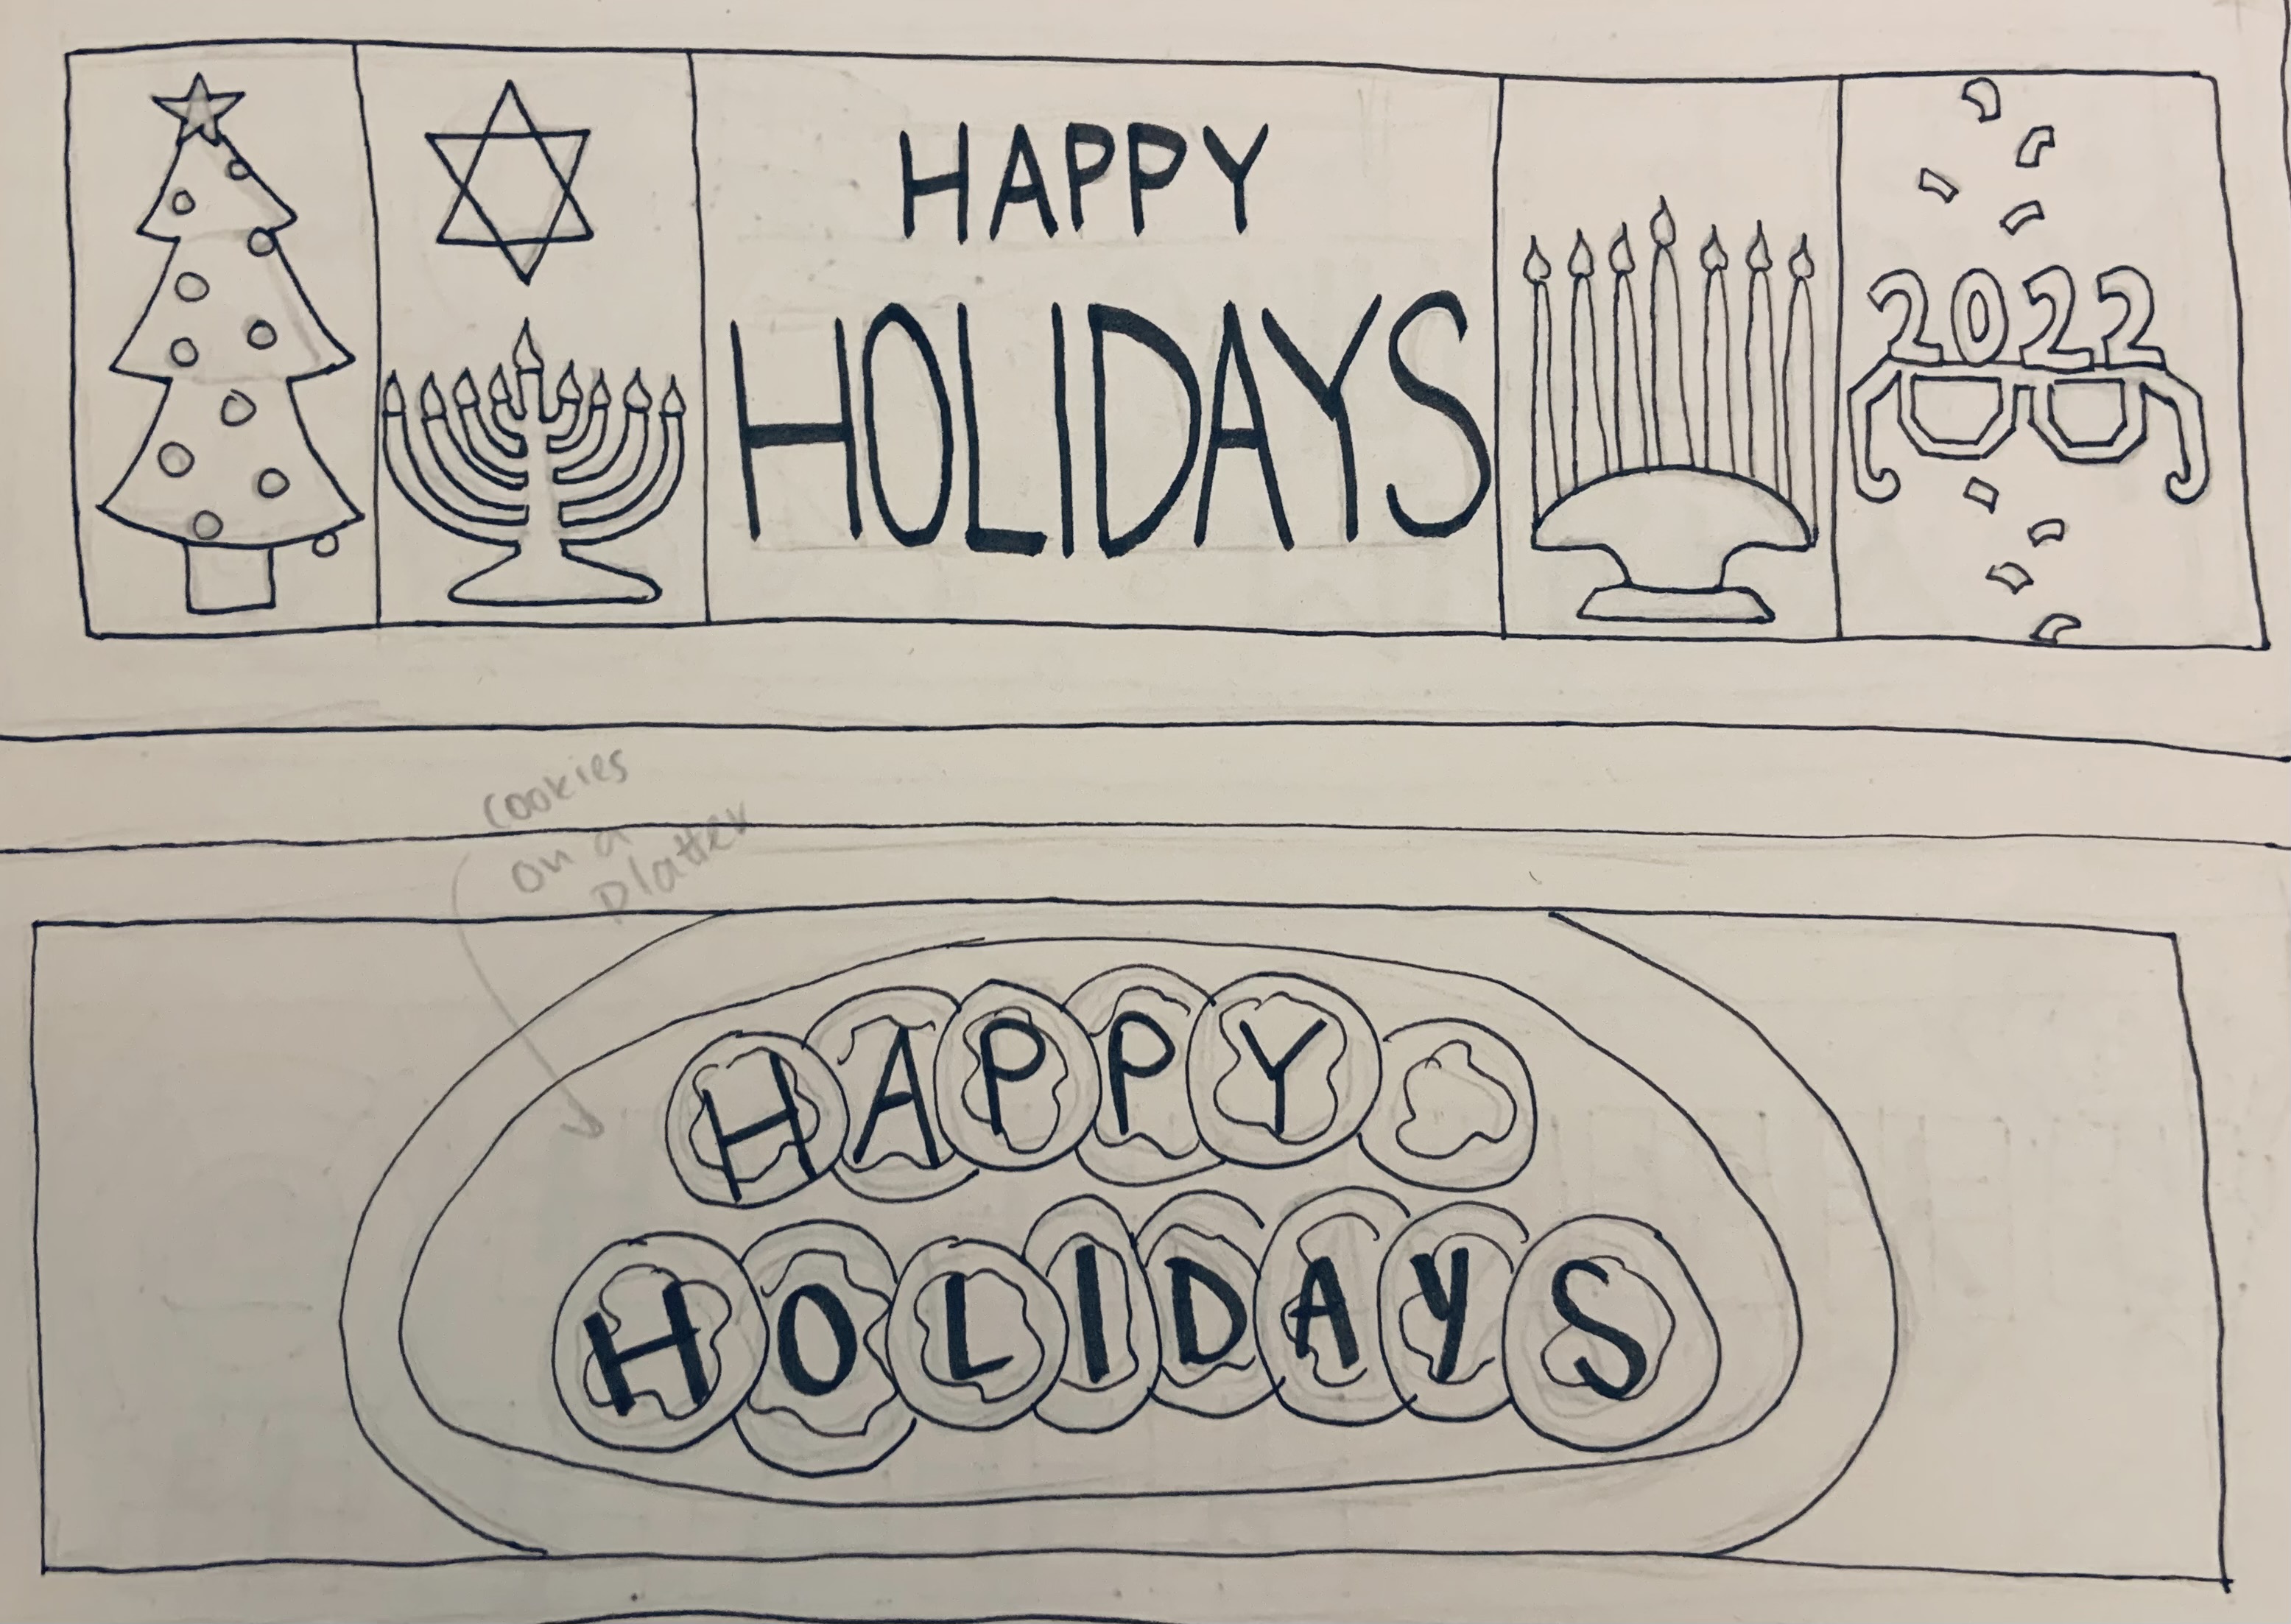 HAPPY
HOLIDAYS
2022
cookies
on a
platter
HAPPY
HOLIDAYS